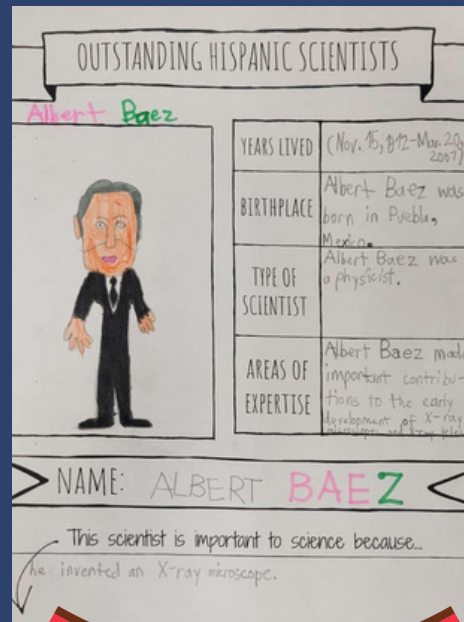 OUTSTANDING HISPANIC SCIENTISTS
Albert Baez
YEARS LIVED
(Nov. 15, 1912-Mar. 20,
2007)
BIRTHPLACE
Albert Baez was
born in Puebla,
Mexico.
TYPE OF
SCIENTIST
Albert Baez was
a physicist.
AREAS OF
EXPERTISE
Albert Baez mad
important contribu-
tions to the early
development of X-ray
NAME: ALBERT BAEZ
This scientist is important to science because...
he invented an X-ray microscope.